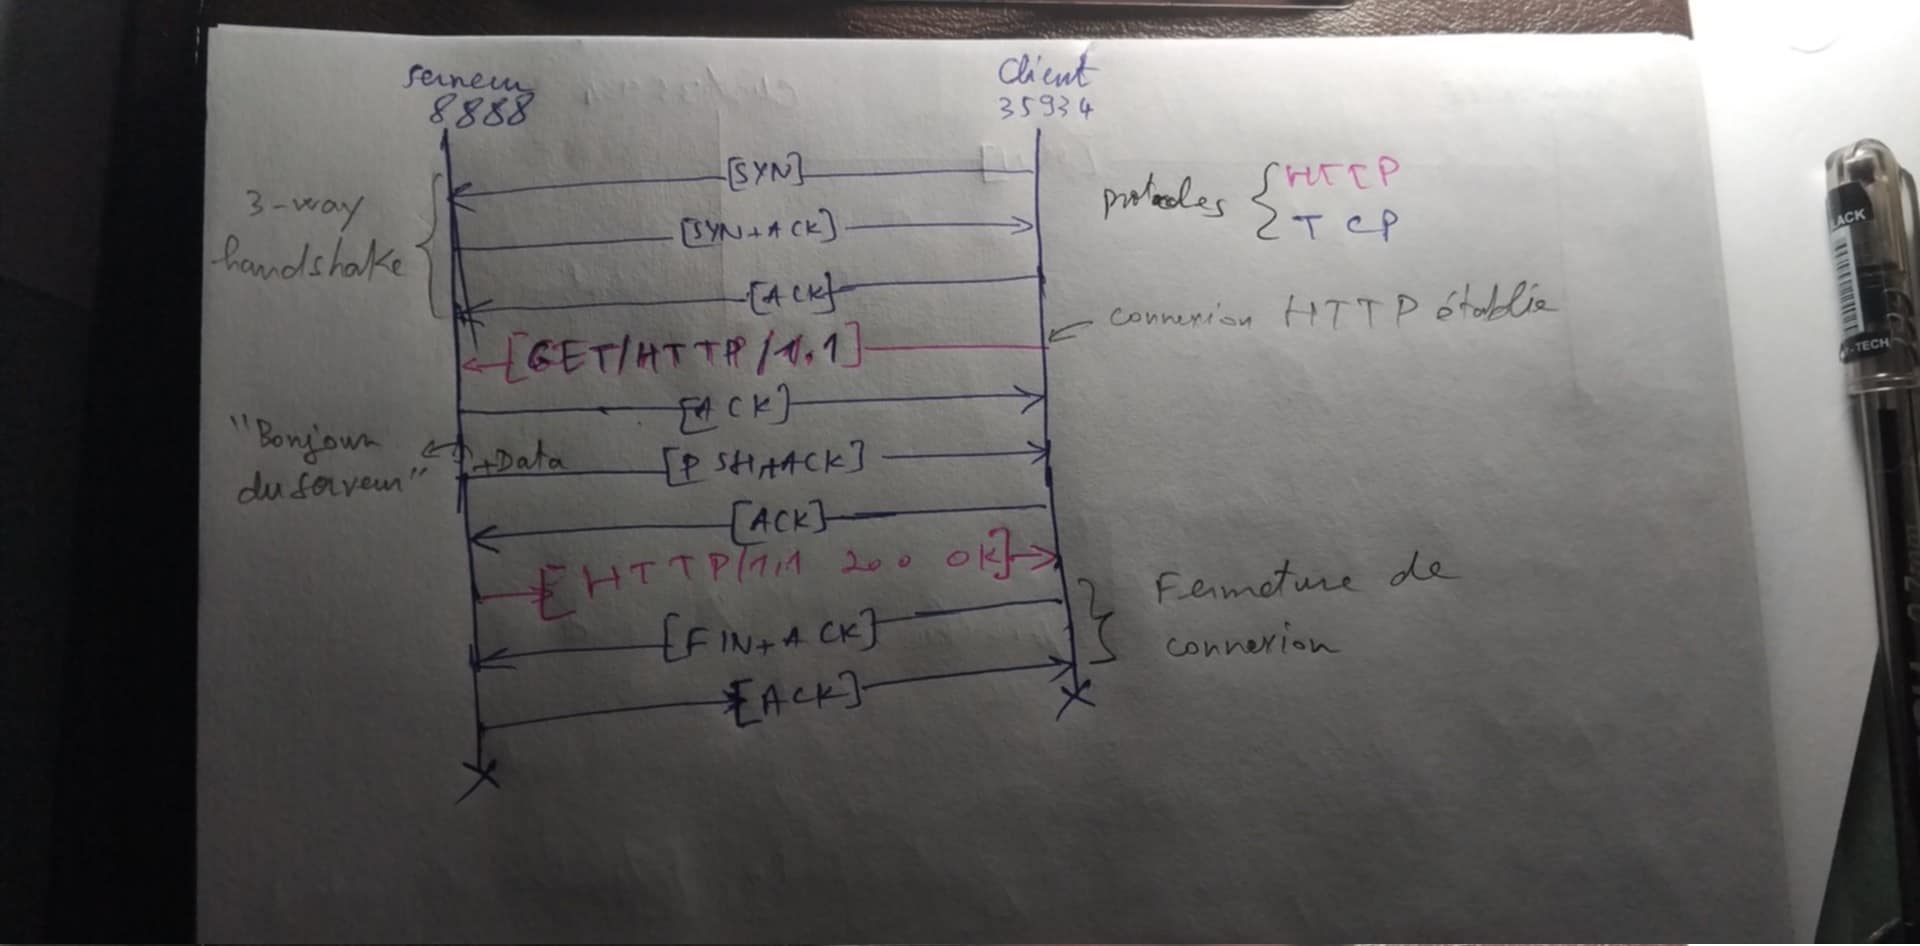 serveur
8888
Client
35934
[SYN]
3-way
handshake
[SYN+ACK]
[ACK]
protocoles { HTTP
TCP
connexion HTTP établie
[GET/HTTP/1.1]
[ACK]
"Bonjour
du serveur"
+Data
[PSH+ACK]
[ACK]
[HTTP/1.1 200 OK]
[FIN+ACK]
[ACK]
Fermeture de
connexion
ACK
-TECH